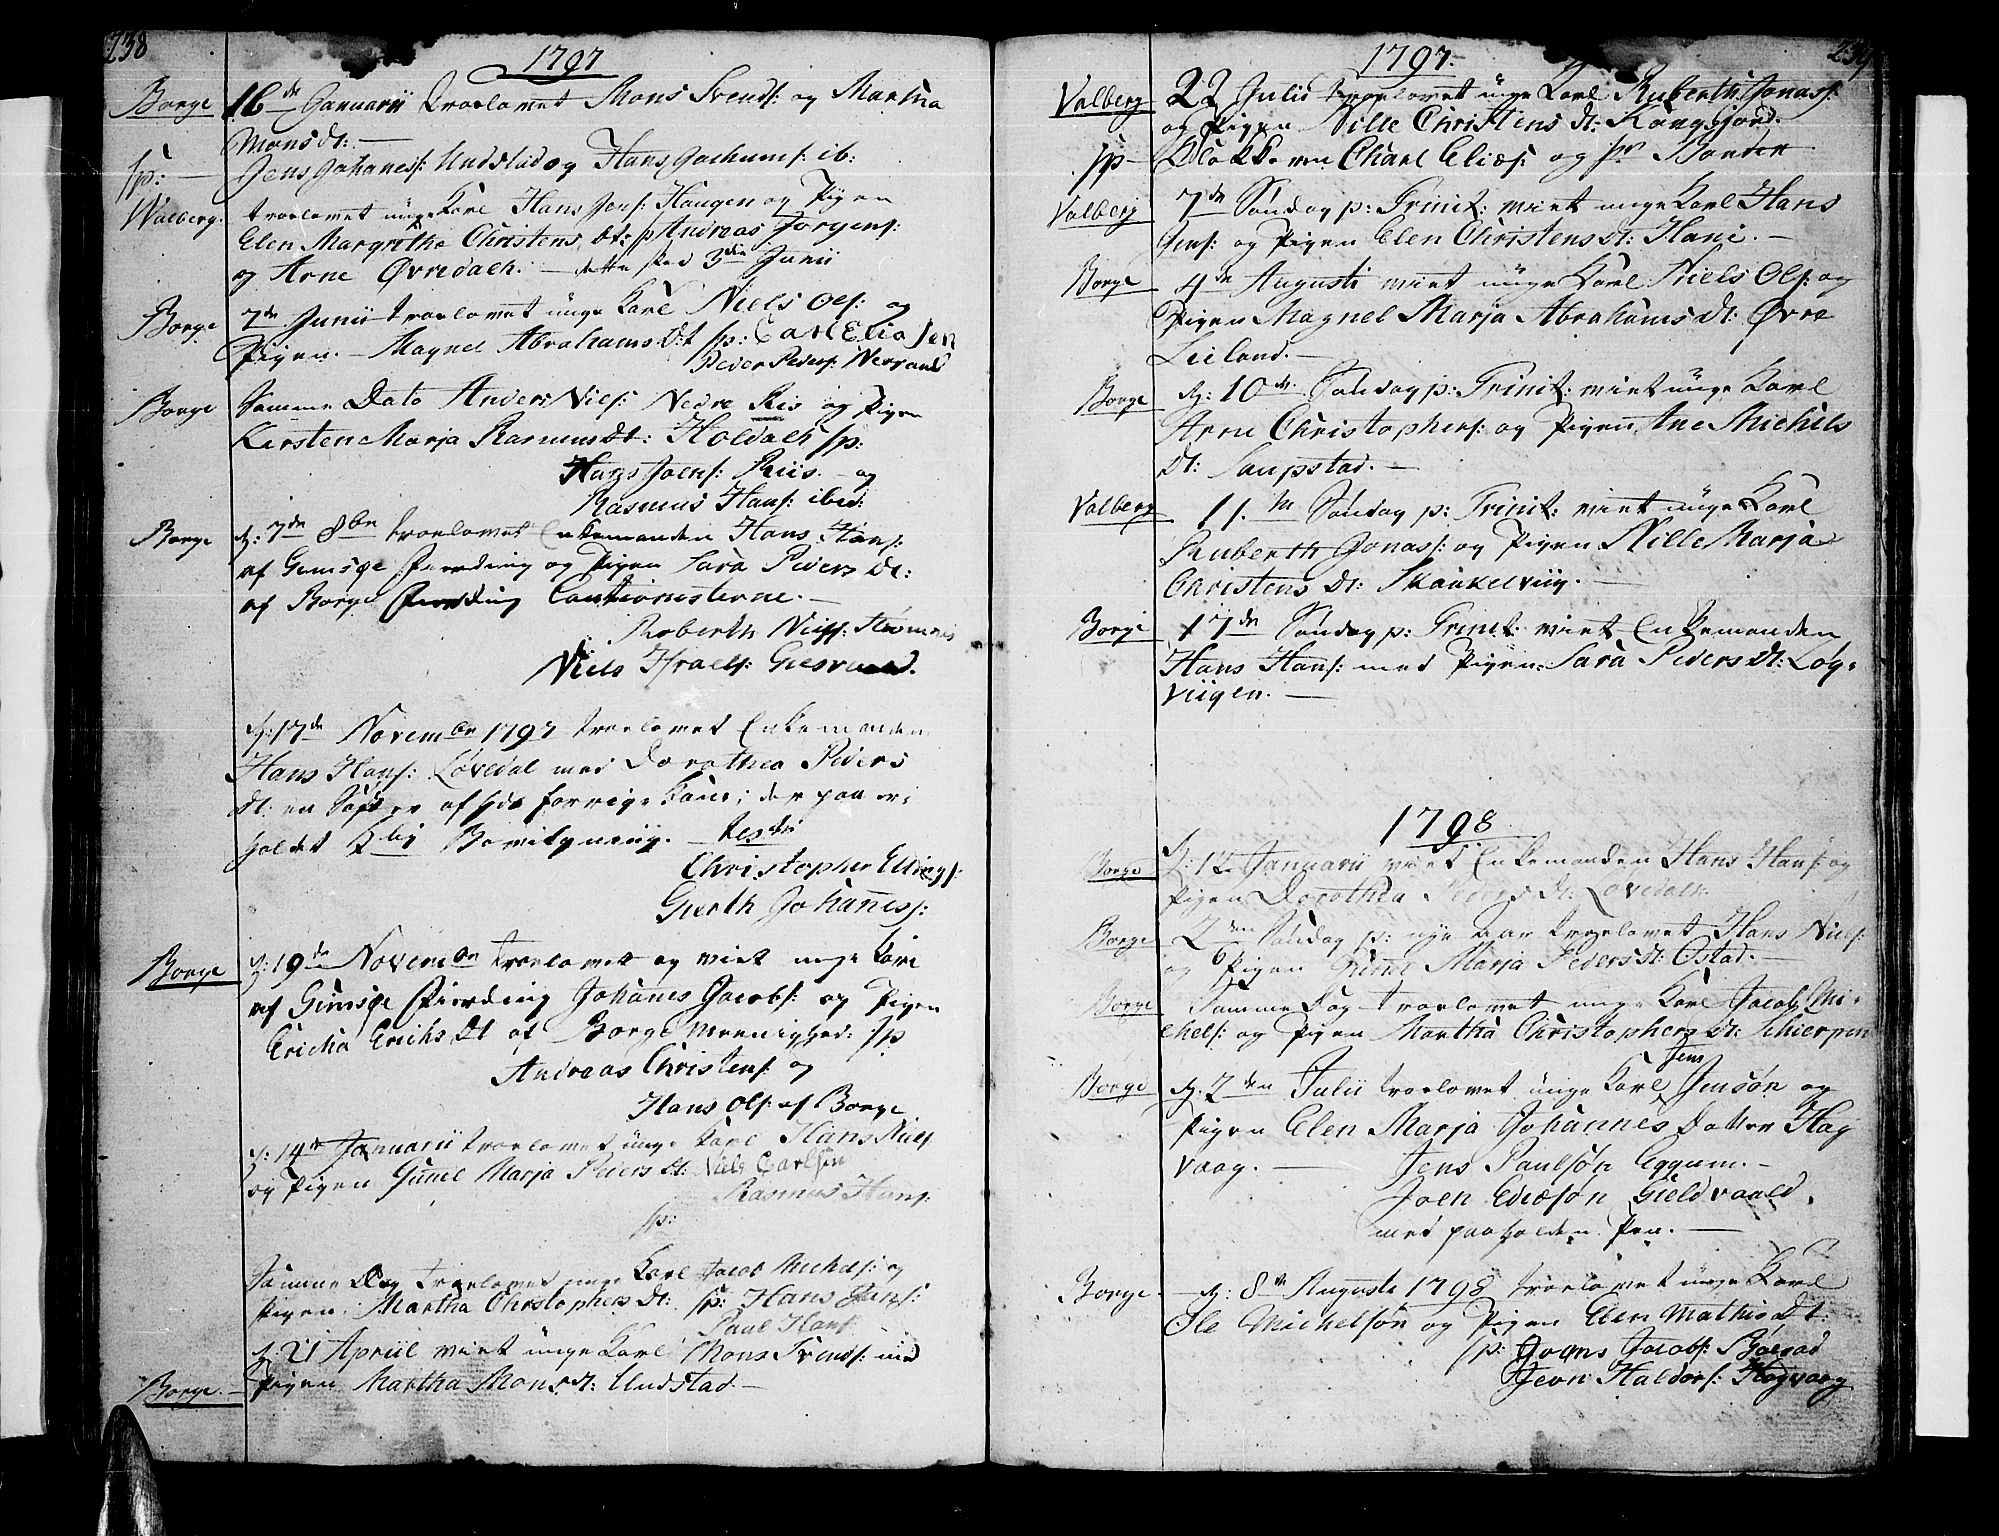 238
1797
Borge 16de Januarii troelovet Mons Svends: og Martha
Monsdt: —
sp: — Jens Johanes: Undstad og Hans Jochums: ib:
Walberg. troelovet unge Karl Hans Jens: Haugen og Pigen
Elen Margretha Christens dt: sp Andreas Jørgens:
og Arne Øvredalh. — dette sked 3die Junii
Borge 7de Junii troelovet unge Karl Niels Ols: og
Pigen — Magnel Abrahams Dt sp: Carl Elia Sen
Peder Peders:
Borge Samme Dato Anders Niels: Nedre Riis og Pigen
Kirsten Marja Rasmus Dt: Holdalh sp:
Hans Joens: Riis — og
Rasmus Hans: ibid:
Borge d: 7de 8br troelovet Enkemanden Hans Hans:
af Gimsøe Fierding og Pigen Sara Peders dt:
af Borge Fierding Cautionisterne. —
Roberth Niels:
Niels Israels:
d: 17de Novembr 1797 troelovet Enkemanden
Hans Hans: Løvedal med Dorothea Peders
dt: en Søster af hds forrige Kone; der paa er:
holdet Kgl: Bevilgning. — testes
Christopher Ellings:
Gierth Johannes:
Borge d: 19de Novembr troelovet og viet unge Karl
af Gimsøe Fierding Johanes Jacobs: og Pigen
Ericha Erichs Dt af Borge Meenighed: sp
Andreas Christens: og
Hans Ols: af Borge
d: 14de Januarii troelovet unge Karl Hans Niels
og Pigen Gunel Marja Peders dt: Niels Carlsøn
Rasmus Hans:
sp:
Samme Dag troelovet unge Karl Jacob Michels: og
Pigen Martha Christophers dt: sp: Hans Jens:
Paul Hans
d: 21 April viet unge Karl Mons Svends: med
Borge. — Pigen Martha Mons dt: Undstad —
239
1797.
Valberg 22 Julii troelovet unge Karl Ruberth Jonas:
og Pigen Nille Christens dt:
sp — Klokkeren Charl Elias: og
Valberg 7de Søndag p: Trinit: viet unge Karl Hans
Jens: og Pigen Elen Christens dt: —
Borge 4de Augusti viet unge Karl Niels Ols: og
Pigen Magnel Marja Abrahams dt: Øvre
Leiland. —
Borge d: 10de Søndag p: Trinit: viet unge Karl
Arne Christophers: og Pigen Ane Michels
dt: Saupstad. —
Valberg 11.te Søndag p: Trinit: viet unge Karl
Ruberth Jonas: og Pigen Nille Marja
Christens dt: Skankelviig. —
Borge 17de Søndag p: Trinit: viet Enkemanden
Hans Hans: med Pigen Sara Peders dt: Løg-
viigen. —
1798
Borge d: 12 Januarii viet Enkemanden Hans Hans: og
Pigen Dorothea Peders dt: Løvedalh
Borge 2den Søndag p: nye Aar troelovet Hans Niels:
og Pigen Gunel Marja Peders dt: Ostad. —
Borge Samme Dag troelovet unge Karl Jacob Mi-
chels: og Pigen Martha Christophers dt: Schierpen
Jens
Borge d: 2den Julii troelovet unge Karl Jensøn og
Pigen Elen Marja Johannes Datter Hag
vaag. — Jens Paulsøn Eggum. —
Joen Gieldvaald.
med paaholden Pen. —
Borge. — d: 8de Augusti 1798 troelovet unge Karl
Ole Michelsøn og Pigen Elen Mathis Dt:
sp: Joens Jacobs: Bøestad
Jeon Haldors: Hagvaag